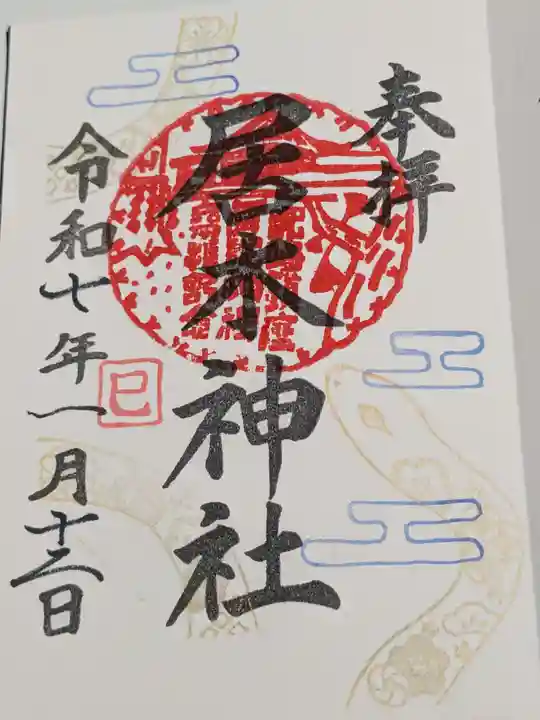 奉拝
居木神社
令和七年一月十二日
巳